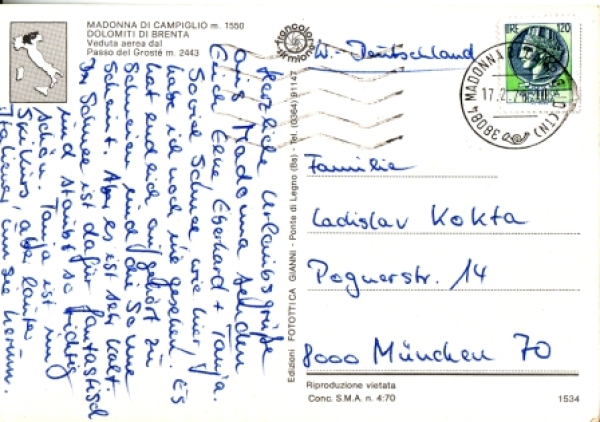 MADONNA DI CAMPIGLIO m. 1550
DOLOMITI DI BRENTA
Veduta aerea dal
Passo del Grostè m. 2443
Herzliche Urlaubsgrüße
aus Madonna senden
Euch Elke Eberhard + Tanja.
Soviel Schnee wie hier
habe ich noch nie gesehen. Es
hat endlich aufgehört zu
Schneien und die Sonne
Scheint. Aber es ist sehr kalt.
Der Schnee ist dafür fantastisch
und staubt so richtig
schön. Tanja ist im
Skikurs, alle lauter
Italiener um sie herum.
Edizioni FOTOTTICA GIANNI - Ponte di Legno (Bs) - Tel. (0364) 91147
LIRE 120
MADONNA
38084
17.2.
(TN)
W.-Deutschland
Familie
Ladislav Kokta
Pognerstr. 14
8000 München 70
Riproduzione vietata
Conc. S.M.A. n. 4:70
1534